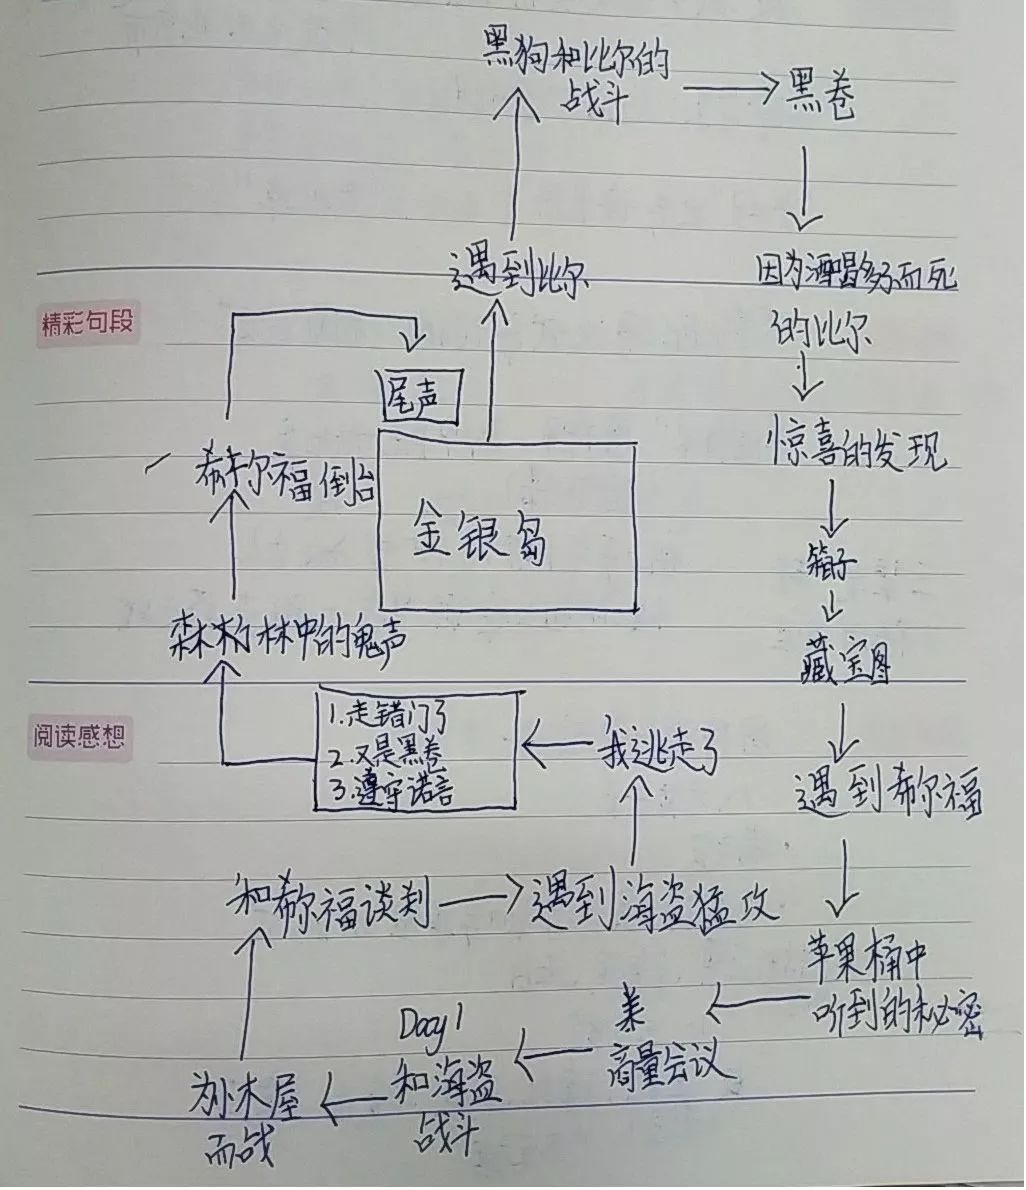 黑狗和比尔的
战斗
黑卷
遇到比尔
因为酒喝多而死
的比尔
精彩句段
尾声
惊喜的发现
希尔福倒台
金银岛
箱子
森林中的鬼声
藏宝图
阅读感想
1.走错门了
2.又是黑卷
3.遵守诺言
我逃走了
遇到希尔福
和希尔福谈判
遇到海盗猛攻
苹果桶中
听到的秘密
Day1
商量会议
和海盗
战斗
为小木屋
而战